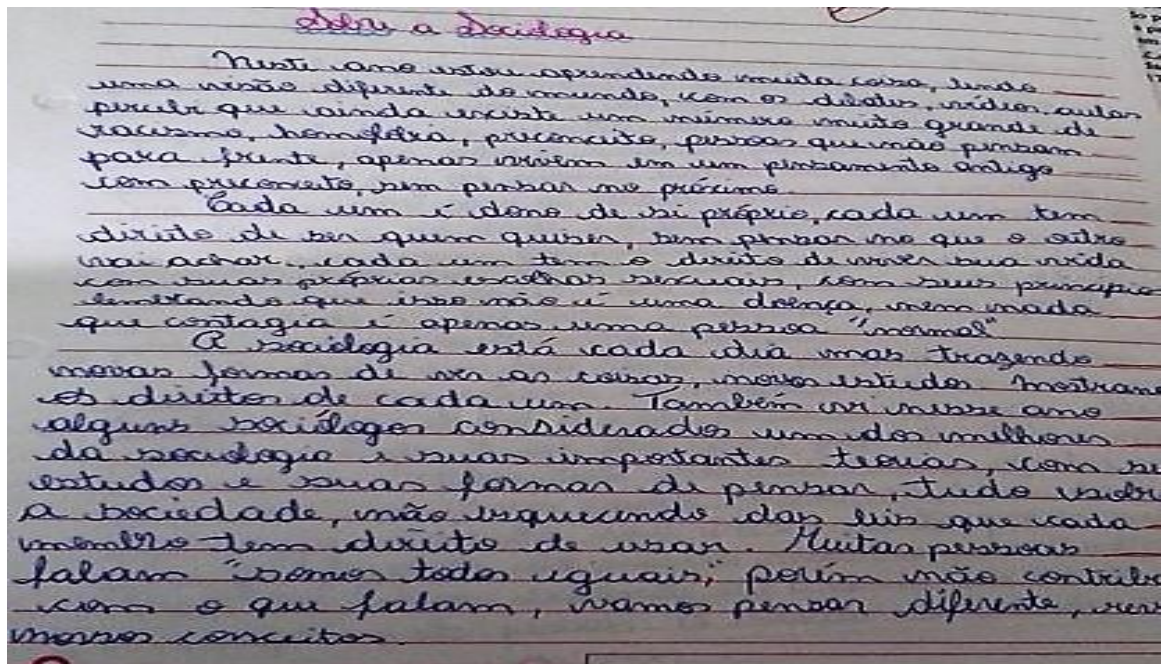 Sobre a Sociologia
Neste ano estou aprendendo muita coisa, tendo
uma visão diferente do mundo, com os debates, vídeos, aulas
percebi que ainda existe um número muito grande de
racismo, homofobia, preconceito, pessoas que não pensam
para frente, apenas vivem em um pensamento antigo
com preconceito, sem pensar no próximo.
Cada um é dono de si próprio, cada um tem
direito de ser quem quiser, sem pensar no que o outro
vai achar, cada um tem o direito de viver sua vida
com suas próprias escolhas sexuais, com seus princípios
lembrando que isso não é uma doença, nem nada
que contagia é apenas uma pessoa "normal"
A sociologia está cada dia mas trazendo
novas formas de ver as coisas, novos estudos mostram
os direitos de cada um. Também vi nesse ano
alguns sociólogos considerados um dos melhores
da sociologia e suas importantes teorias, com
estudos e suas formas de pensar, tudo
a sociedade, não esquecendo das leis que cada
membro tem direito de usar. Muitas pessoas
falam "somos todos iguais", porém não
com o que falam, vamos pensar diferente,
nossos conceitos.